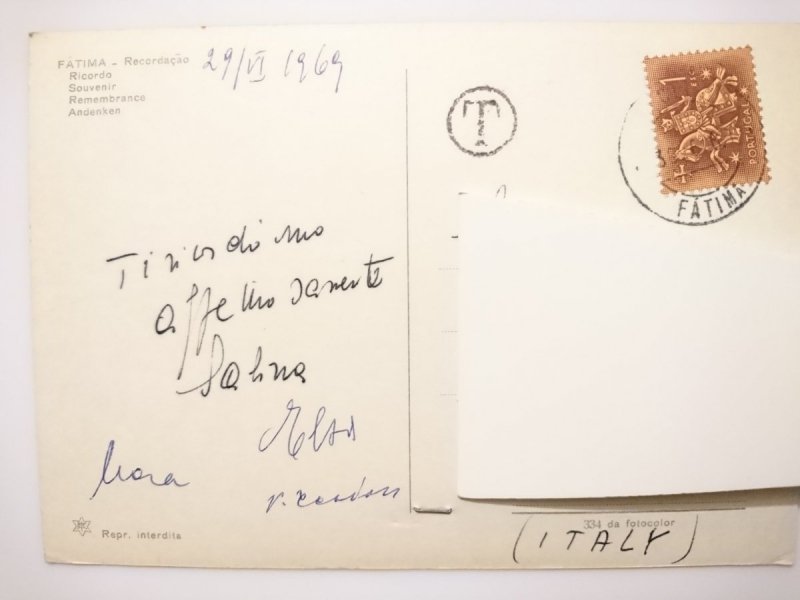 FÁTIMA - Recordação
Ricordo
Souvenir
Remembrance
Andenken
29/VI 1969
T
1
PORTUGAL
FÁTIMA
Ti ricordiamo
affettuosamente
Sabina
Elsa
Mara
Repr. interdita
334 da fotocolor
(ITALY)